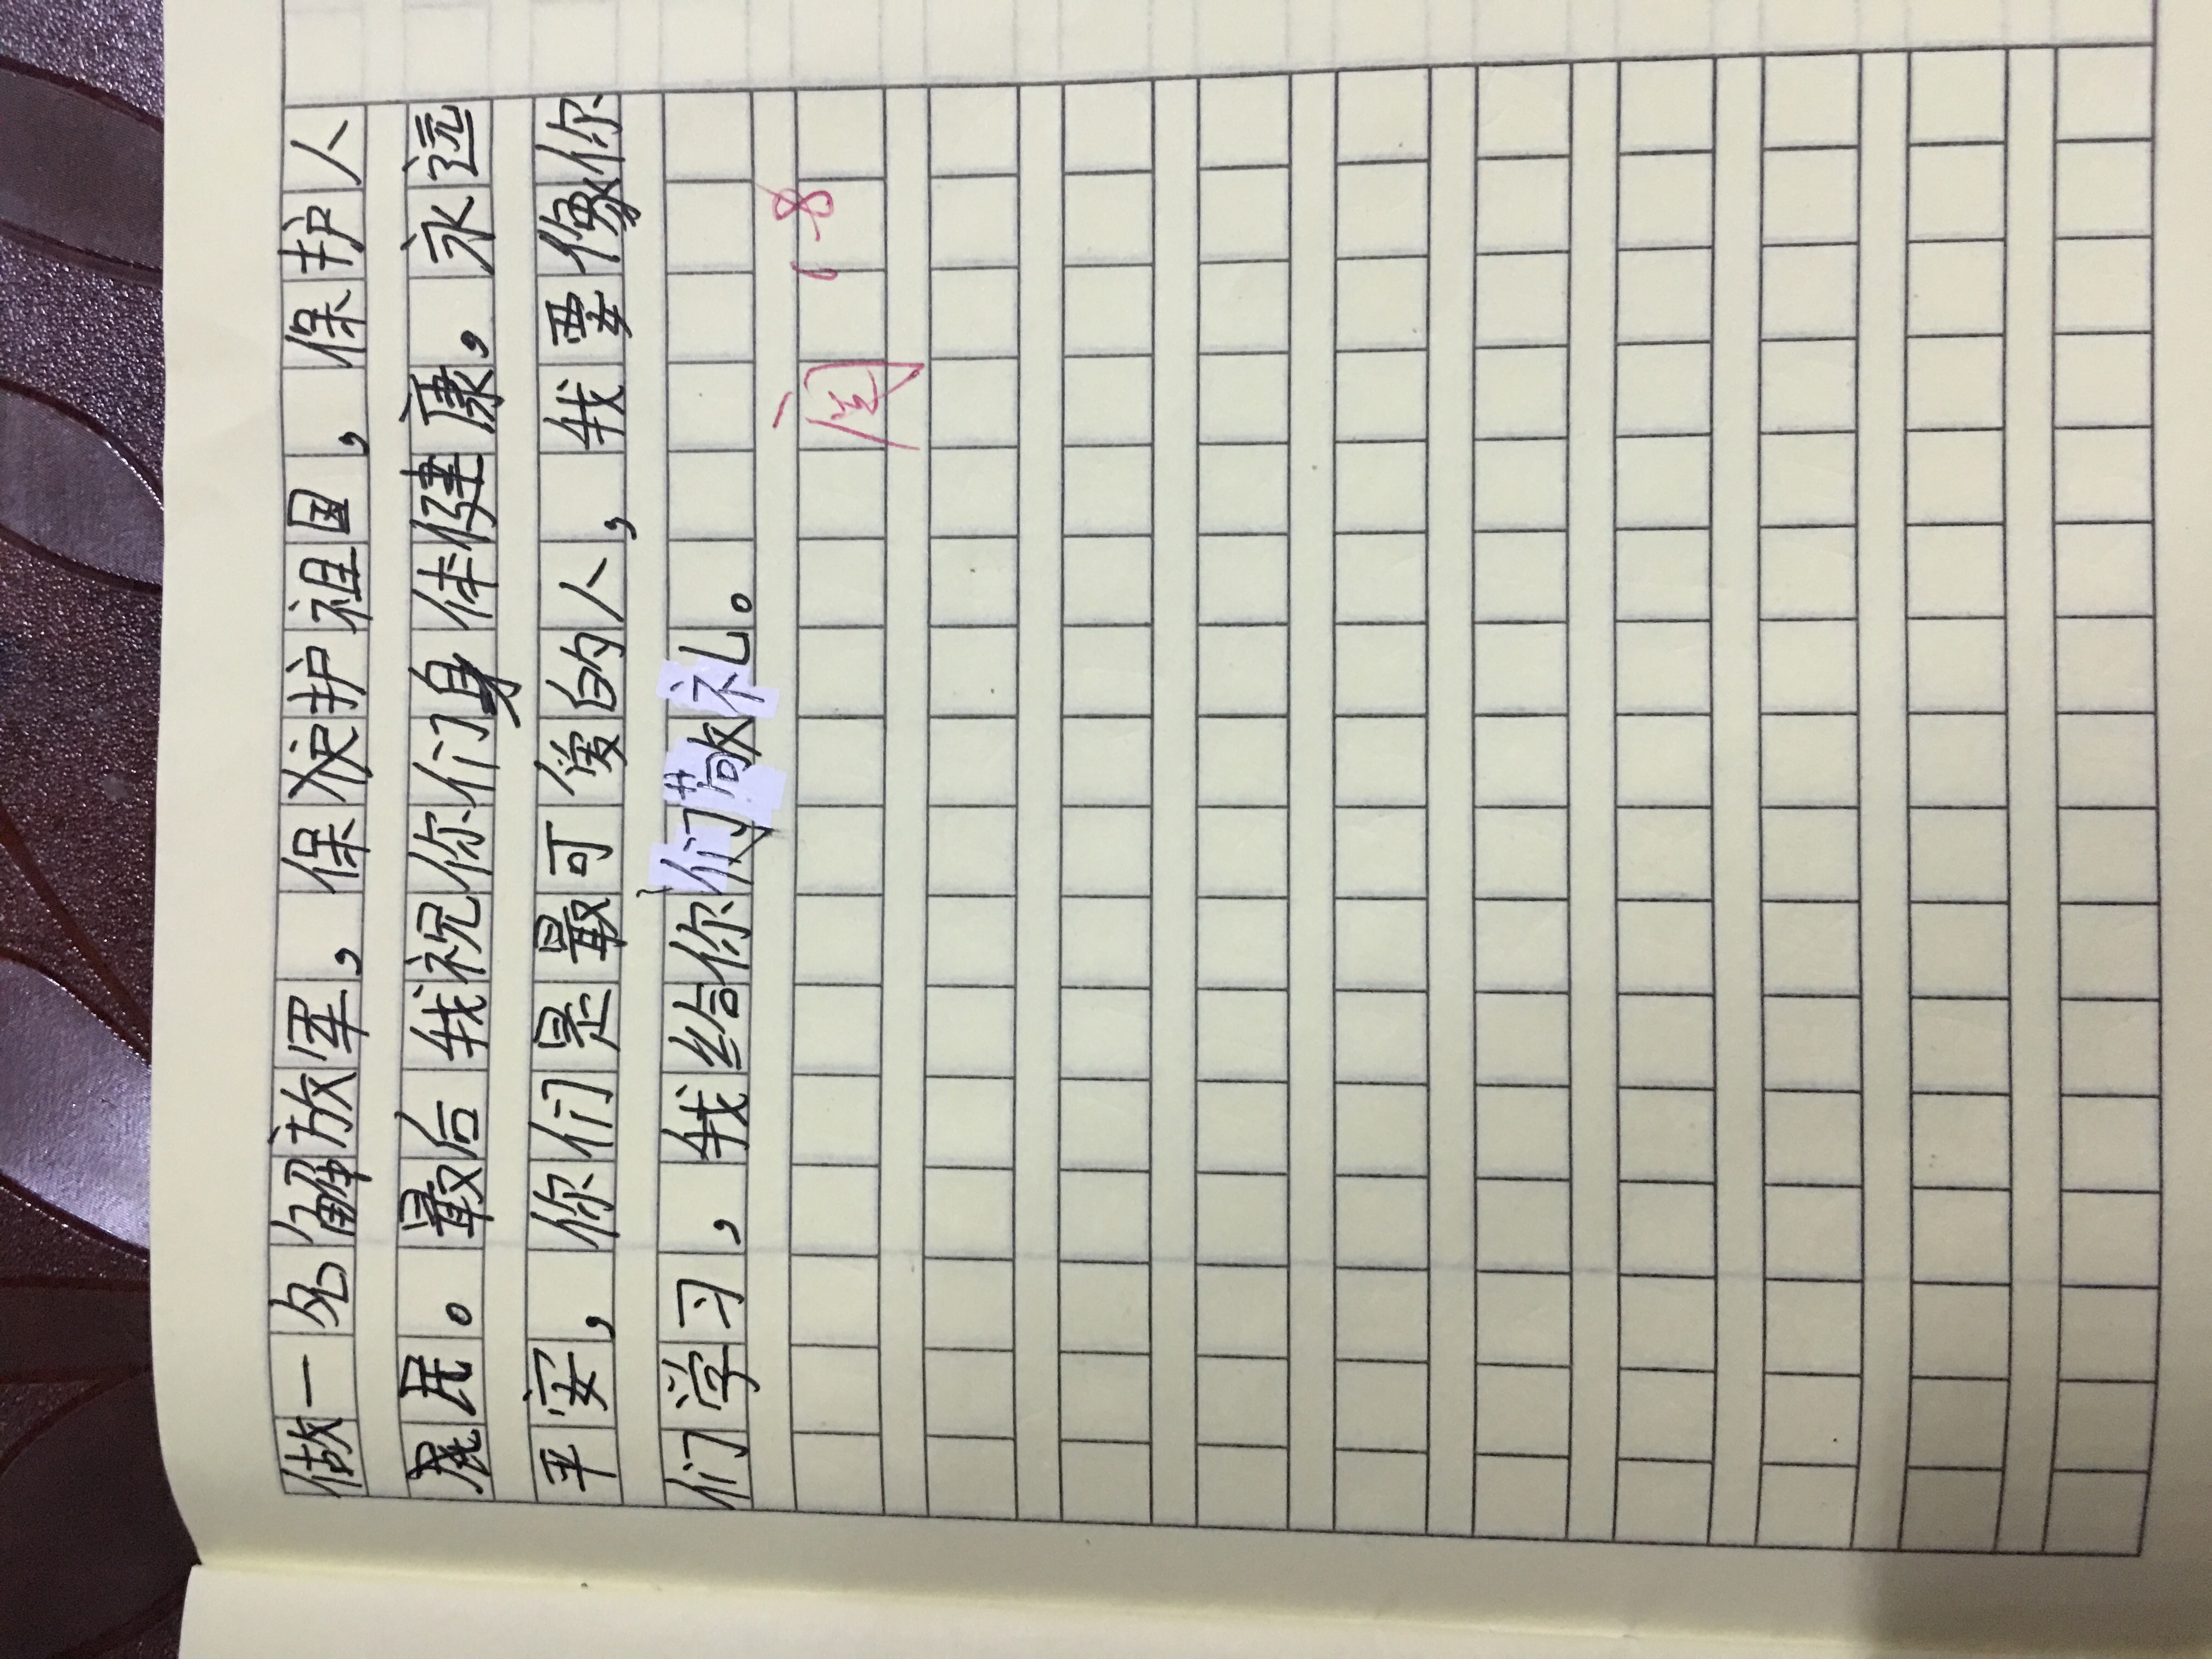 做一名解放军，保护祖国，保护人
民。最后我祝你们身体健康，永远
平安，你们是最可爱的人，我要像你
们学习，我给你们敬礼。